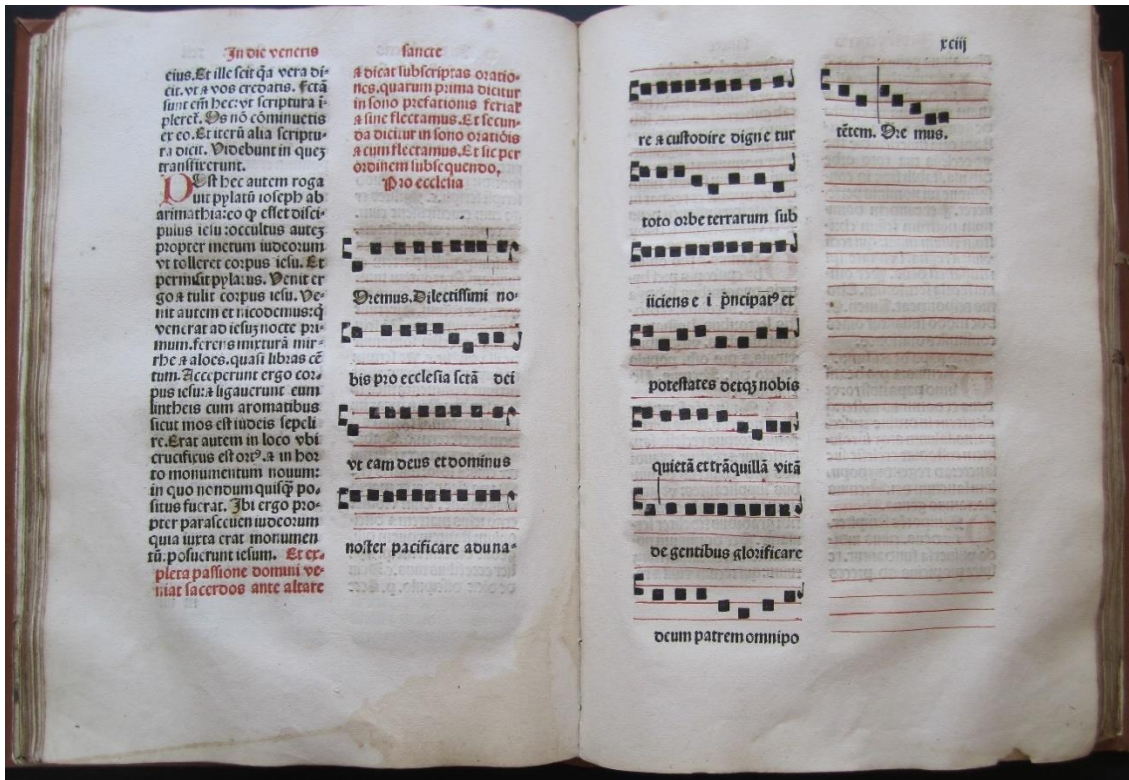 In die veneris
eius. Et ille scit q̃a vera di-
cit. vt ⁊ vos credatis. Fctã
sunt em̃ hec: vt scriptura ĩ-
pleret̃. Os nõ cõminuetis
ex eo. Et iterũ alia scriptu-
ra dicit. Videbunt in quez
transfixerunt.
POst hec autem roga
uit pylatũ ioseph ab
arimathia: eo ꝙ esset disci-
pulus iesu: occultus autez
propter metum iudeorum
vt tolleret corpus iesu. Et
permisit pylatus. Venit er
go ⁊ tulit corpus iesu. Ve-
nit autem et nicodemus: q̇
venerat ad iesuz nocte pri-
mum. ferens mixturã mir-
rhe ⁊ aloes. quasi libras cẽ
tum. Acceperunt ergo cor-
pus iesu: ⁊ ligauerunt eum
lintheis cum aromatibus
sicut mos est iudeis sepeli
re. Erat autem in loco vbi
crucifixus est ortꝰ. ⁊ in hor
to monumentum nouum:
in quo nondum quisq̃ po-
situs fuerat. Ibi ergo pro-
pter parasceuen iudeorum
quia iuxta erat monumen
tũ. posuerunt iesum. Et ex-
pleta passione domini ve-
niat sacerdos ante altare
sancte
⁊ dicat subscriptas oratio-
nes. quarum prima dicitur
in sono prefationis ferial
⁊ sine flectamus. Et secun-
da dicitur in sono oratiõis
⁊ cum flectamus. Et sic per
ordinem subsequendo.
Pro ecclesia
Oremus. Dilectissimi no-
bis pro ecclesia sctã dei
vt eam deus et dominus
noster pacificare aduna-
xciij
re ⁊ custodire digne tur
toto orbe terrarum sub
iiciens e i p̃ncipatꝰ et
potestates detqꝫ nobis
quietã et trãquillã vitã
de gentibus glorificare
deum patrem omnipo
tẽtem. Ore mus.